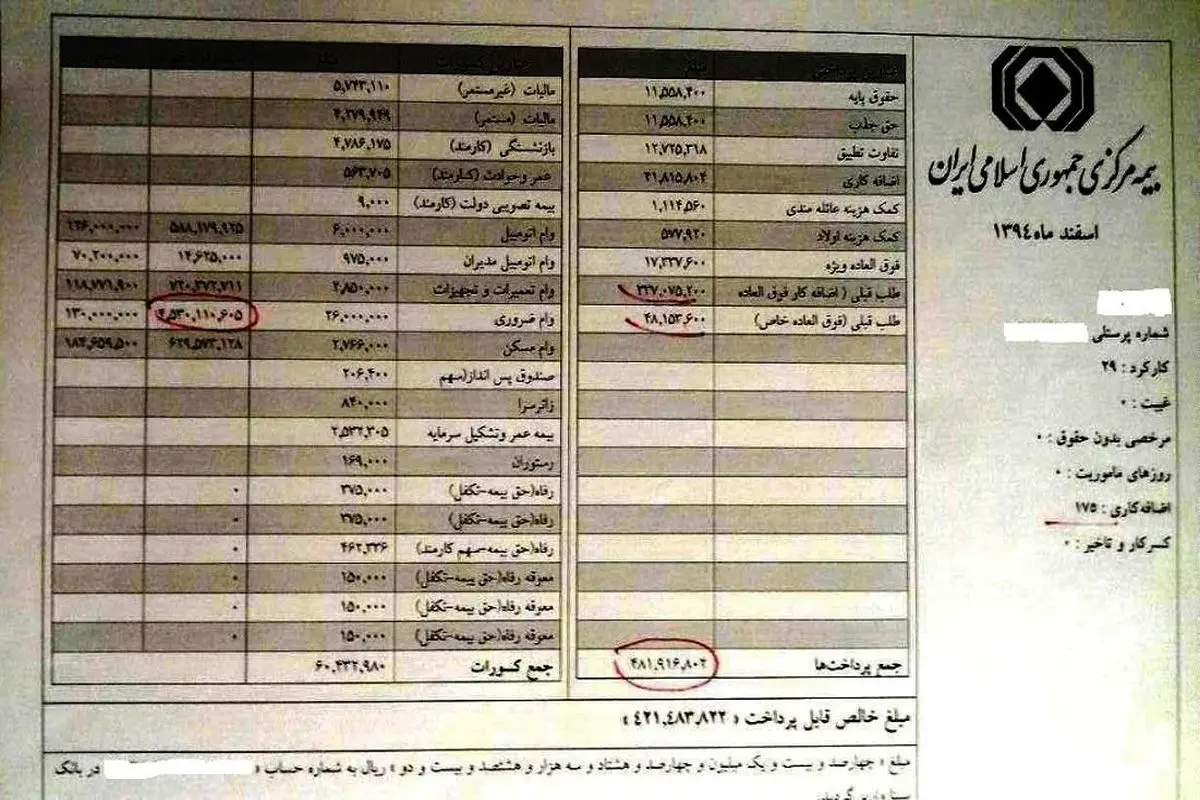 بیمه مرکزی جمهوری اسلامی ایران
اسفند ماه ۱۳۹۴
شماره پرسنلی
کارکرد : ۲۹
غیبت : ۰
مرخصی بدون حقوق : ۰
روزهای ماموریت : ۰
اضافه‌کاری : ۱۷۵
کسرکار و تاخیر : ۰
حقوق پایه ۱۱,۵۵۸,۴۰۰
حق جذب ۱۱,۵۵۸,۴۰۰
تفاوت تطبیق ۱۲,۷۲۵,۳۱۸
اضافه کاری ۴۱,۸۱۵,۸۰۴
کمک هزینه عائله مندی ۱,۱۱۴,۵۶۰
کمک هزینه اولاد ۵۷۷,۹۲۰
فوق العاده ویژه ۱۷,۳۳۷,۶۰۰
طلب قبلی ( اضافه کار فوق العاده ۳۳۷,۰۷۵,۲۰۰
طلب قبلی (فوق العاده خاص) ۴۸,۱۵۳,۶۰۰
جمع پرداخت‌ها ۴۸۱,۹۱۶,۸۰۲
عناوین کسورات مبلغ
مالیات (غیرمستمر) ۵,۷۴۳,۱۱۰
مالیات (مستمر) ۴,۲۷۹,۹۴۹
بازنشستگی (کارمند) ۴,۷۸۶,۱۷۵
عمر و حوادث (کارمند) ۵۶۳,۷۰۵
بیمه تصویبی دولت (کارمند) ۹,۰۰۰
وام اتومبیل ۶,۰۰۰,۰۰۰ ۵۸۸,۱۷۹,۹۲۵ ۱۲۶,۰۰۰,۰۰۰
وام اتومبیل مدیران ۹۷۵,۰۰۰ ۱۴,۶۲۵,۰۰۰ ۷۰,۲۰۰,۰۰۰
وام تعمیرات و تجهیزات ۲,۸۵۰,۰۰۰ ۷۲۰,۳۷۲,۷۱۱ ۱۱۸,۷۷۱,۹۰۰
وام ضروری ۲۶,۰۰۰,۰۰۰ ۴,۵۳۰,۱۱۰,۶۰۵ ۱۳۰,۰۰۰,۰۰۰
وام مسکن ۲,۷۶۶,۰۰۰ ۶۲۹,۵۷۳,۱۲۸ ۱۸۴,۶۵۹,۵۰۰
صندوق پس انداز(سهم ۲۰۶,۴۰۰
زائرسرا ۸۴۰,۰۰۰
بیمه عمر وتشکیل سرمایه ۲,۵۳۲,۳۰۵
رستوران ۱۶۹,۰۰۰
رفاه(حق بیمه-تکفل) ۳۷۵,۰۰۰ ۰
رفاه(حق بیمه-تکفل) ۳۷۵,۰۰۰ ۰
رفاه(حق بیمه-سهم کارمند) ۴۶۲,۳۳۶ ۰
معوقه رفاه(حق بیمه-تکفل) ۱۵۰,۰۰۰ ۰
معوقه رفاه(حق بیمه-تکفل) ۱۵۰,۰۰۰ ۰
معوقه رفاه(حق بیمه-تکفل) ۱۵۰,۰۰۰ ۰
جمع کسورات ۶۰,۴۳۲,۹۸۰
مبلغ خالص قابل پرداخت « ۴۲۱,۴۸۳,۸۲۲ »
مبلغ « چهارصد و بیست و یک میلیون و چهارصد و هشتاد و سه هزار و هشتصد و بیست و دو » ریال به شماره حساب « در بانک